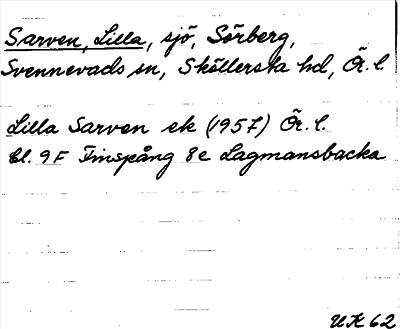 Sarven, Lilla, sjö, Sörberg,
Svennevads sn, Sköllersta hd, Ör. l.
Lilla Sarven ek (1957) Ör. l.
bl. 9F Finspång 8e Lagmansbacka
UK 62